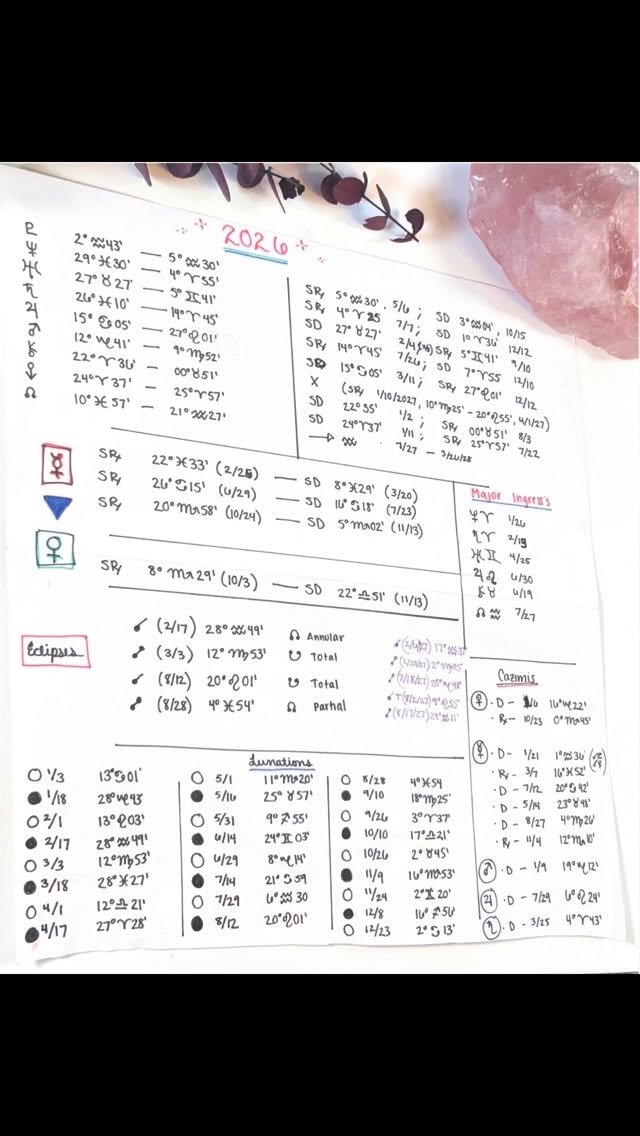 2026
♇ 2° ♒ 43' — 5° ♒ 30'
♆ 29° ♓ 30' — 4° ♈ 55'
♅ 27° ♉ 27' — 5° ♊ 41'
♄ 26° ♓ 10' — 14° ♈ 45'
♃ 15° ♋ 05' — 27° ♌ 01'
♂ 12° ♑ 41' — 9° ♍ 52'
⚷ 22° ♈ 36' — 00° ♉ 51'
24° ♈ 37' — 25° ♈ 57'
☊ 10° ♓ 57' — 21° ♒ 27'
SR 5° ♒ 30', 5/6 ; SD 3° ♒ 04', 10/15
SR 4° ♈ 25 7/7 ; SD 1° ♈ 36' 12/12
SD 27° ♉ 27' 2/4 SR 5° ♊ 41' 9/10
SR 14° ♈ 45' 7/26 ; SD 7° ♈ 55 12/10
SD 15° ♋ 05' 3/11 ; SR 27° ♌ 01' 12/12
X (SR 1/10/2027, 10° ♍ 25' – 20° ♌ 55', 4/1/27)
SD 22° 35' 1/2 ; SR 00° ♉ 51' 8/3
SD 24° ♈ 37' 1/11 ; SR 25° ♈ 57' 7/22
→ ♒ . 7/27 – 3/26/28
☿ SR 22° ♓ 33' (2/25) — SD 8° ♓ 29' (3/20)
SR 26° ♋ 15' (6/29) — SD 16° ♋ 18' (7/23)
SR 20° ♏ 58' (10/24) — SD 5° ♏ 02' (11/13)
♀ SR 8° ♏ 29' (10/3) — SD 22° ♎ 51' (11/13)
Major Ingress's
♆ ♈ 1/26
♄ ♈ 2/13
♅ ♊ 4/25
♃ ♌ 6/30
⚷ ♉ 6/19
☊ ♒ 7/27
Eclipses
☌ (2/17) 28° ♒ 49' ☊ Annular
☍ (3/3) 12° ♍ 53' ☋ Total
☌ (8/12) 20° ♌ 01' ☋ Total
☍ (8/28) 4° ♓ 54' ☊ Partial
☌ (2/6/27) 17° ♒ 
☍ (2/20/27) 2° ♍ 
☍ (7/18/27) 25° ♑ 
☌ T (8/2/27) 9° ♌ 55'
☍ (8/17/27) 24° ♒ 11'
Cazimis
♀ . D – 1/6 16° ♑ 22'
. R – 10/23 0° ♏ 45'
☿ . D – 1/21 1° ♒ 36'
. R – 3/7 16° ♓ 52'
. D – 7/12 20° ♋ 42'
. D – 5/14 23° ♉ 48'
. D – 8/27 4° ♍ 26'
. R – 11/4 12° ♏ 10'
♂ . D – 1/9 19° ♑ 12'
♃ . D – 7/29 6° ♌ 24'
♄ . D – 3/25 4° ♈ 43'
Lunations
○ 1/3 13° ♋ 01'
● 1/18 28° ♑ 43'
○ 2/1 13° ♌ 03'
● 2/17 28° ♒ 49'
○ 3/3 12° ♍ 53'
● 3/18 28° ♓ 27'
○ 4/1 12° ♎ 21'
● 4/17 27° ♈ 28'
○ 5/1 11° ♏ 20'
● 5/16 25° ♉ 57'
○ 5/31 9° ♐ 55'
● 6/14 24° ♊ 03'
○ 6/29 8° ♑ 14'
● 7/14 21° ♋ 59
○ 7/29 6° ♒ 30
● 8/12 20° ♌ 01'
○ 8/28 4° ♓ 54
● 9/10 18° ♍ 25'
○ 9/26 3° ♈ 37'
● 10/10 17° ♎ 21'
○ 10/26 2° ♉ 45'
● 11/9 16° ♏ 53'
○ 11/24 2° ♊ 20'
● 12/8 16° ♐ 56'
○ 12/23 2° ♋ 13'